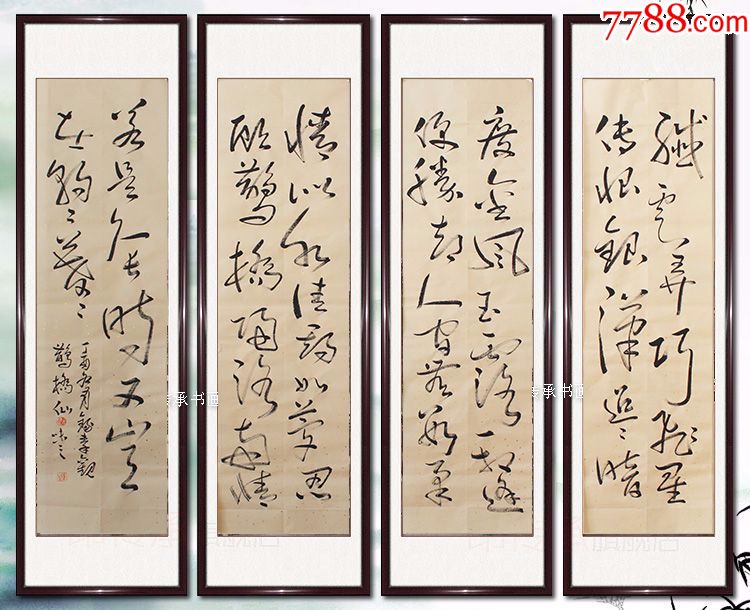 7788.com
纖雲弄巧飛星
傳恨銀漢迢々暗
度金風玉露一相逢
便勝却人間無數柔
情似水佳期如夢忍
顧鵲橋歸路兩情
若是久長時又豈
在朝々暮々
丁酉月錄秦觀
鵲橋仙
承书